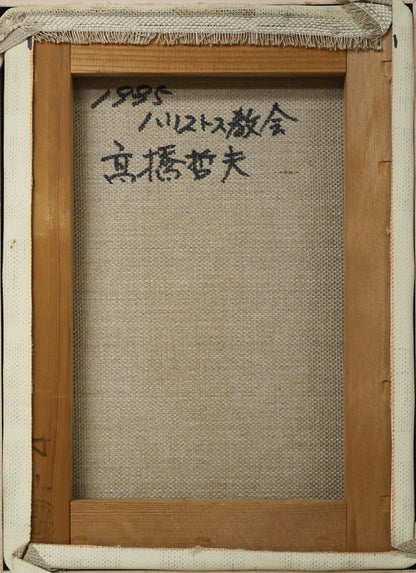 1995
ハリストス教会
高橋哲夫
4